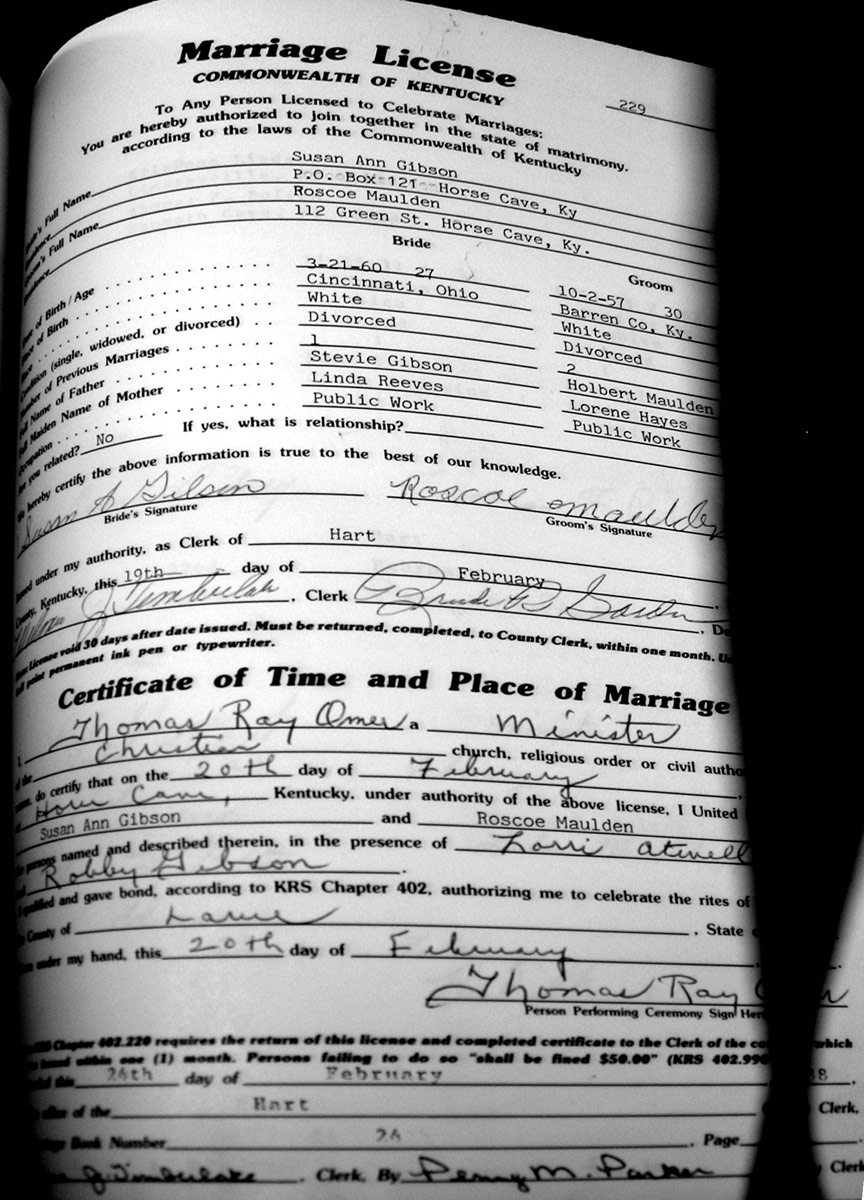 Marriage License
COMMONWEALTH OF KENTUCKY
229
To Any Person Licensed to Celebrate Marriages:
You are hereby authorized to join together in the state of matrimony.
according to the laws of the Commonwealth of Kentucky
Full Name Susan Ann Gibson
P.O. Box 121 Horse Cave, Ky
Full Name Roscoe Maulden
112 Green St. Horse Cave, Ky.
Bride Groom
of Birth/Age 3-21-60 27 10-2-57 30
of Birth Cincinnati, Ohio Barren Co. Ky.
White White
(single, widowed, or divorced) Divorced Divorced
of Previous Marriages 1 2
Name of Father Stevie Gibson Holbert Maulden
Maiden Name of Mother Linda Reeves Lorene Hayes
Public Work Public Work
you related? No If yes, what is relationship?
hereby certify the above information is true to the best of our knowledge.
Susan A Gibson Roscoe Maulden
Bride's Signature Groom's Signature
under my authority, as Clerk of Hart
County, Kentucky, this 19th day of February
Timberlake, Clerk
License void 30 days after date issued. Must be returned, completed, to County Clerk, within one month.
point permanent ink pen or typewriter.
Certificate of Time and Place of Marriage
I, Thomas Ray Omer a Minister
of the Christian church, religious order or civil
do certify that on the 20th day of February
Horse Cave, Kentucky, under authority of the above license, I United
Susan Ann Gibson and Roscoe Maulden
persons named and described therein, in the presence of Lorri Atwell
Robby Gibson.
qualified and gave bond, according to KRS Chapter 402, authorizing me to celebrate the rites of
County of Larue, State
under my hand, this 20th day of February
Thomas Ray
Person Performing Ceremony Sign Here
Chapter 402.220 requires the return of this license and completed certificate to the Clerk of the which
issued within one (1) month. Persons failing to do so "shall be fined $50.00" (KRS 402.990
this 24th day of February 88
office of the Hart Clerk,
Book Number 24, Page
J. Timberlake, Clerk, By Penny M. Parker Clerk